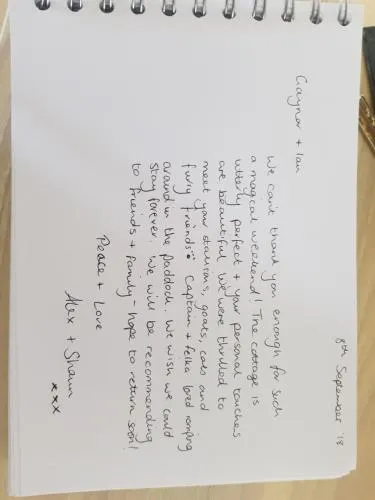 8th September '18
Gaynor + Ian
We can't thank you enough for such
a magical weekend! The cottage is
utterly perfect + your personal touches
are beautiful. We were thrilled to
meet your stallions, goats, cats and
furry friends. Captain + Felka loved romping
around in the paddock. We wish we could
stay forever. We will be recommending
to friends + family - hope to return soon!
Peace + Love
Alex + Shaun
xxx